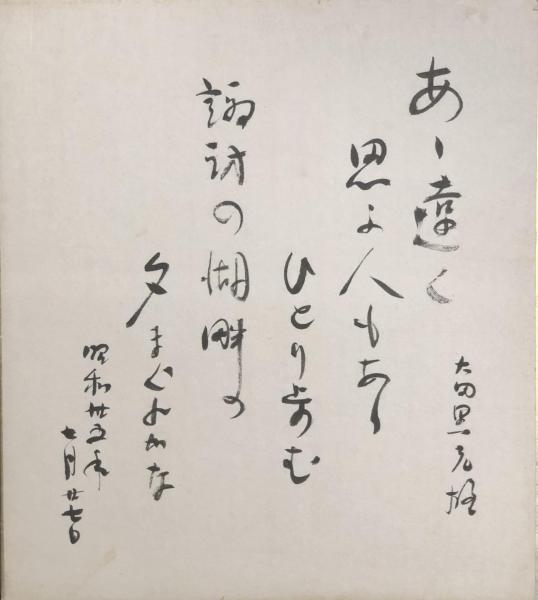 あゝ遠く
思ふ人もあり
ひとり歩む
諏訪の湖畔の
夕まぐれかな
大田黒元雄
昭和卅五年
七月廿七日